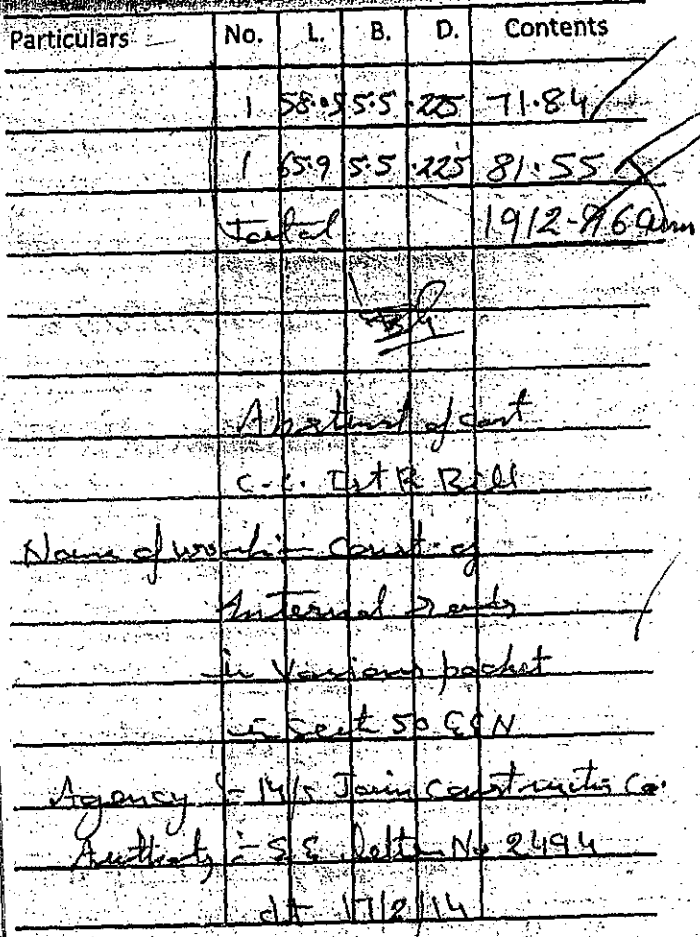 Particulars No. L. B. D. Contents
1 58.05 5.5 .225 71.84
1 65.9 5.5 .225 81.55
Total 1912.96 Cum
Abstract of cost
C.C. Ist R Bill
Name of work :- Const. of
Internal roads
in Various pocket
in Sect 50 GGN
Agency :- M/s Jain Construction Co.
Authority :- S.E. letter No 2494
dt 17/2/14